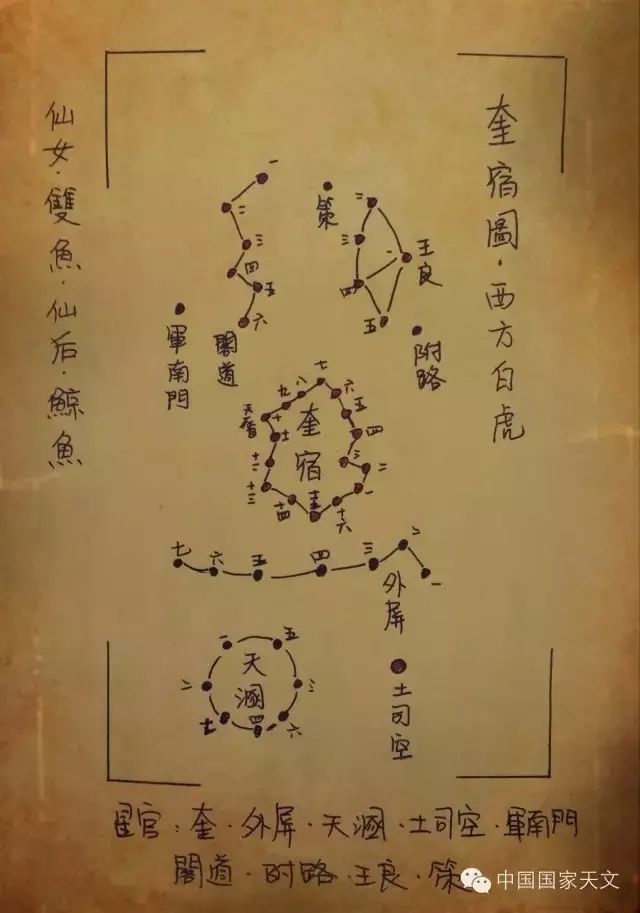 奎宿圖·西方白虎
仙女·雙魚·仙后·鯨魚
一
二
三
四
五
六
閣道
策
二
三
一
四
五
王良
附路
軍南門
七
八
九
十
天大將
六
五
四
三
二
一
十六
十五
十四
十三
十二
十一
奎宿
七
六
五
四
三
二
一
外屏
一
五
二
三
七
四
六
天溷
土司空
星官：奎·外屏·天溷·土司空·軍南門
閣道·附路·王良·策
中国国家天文